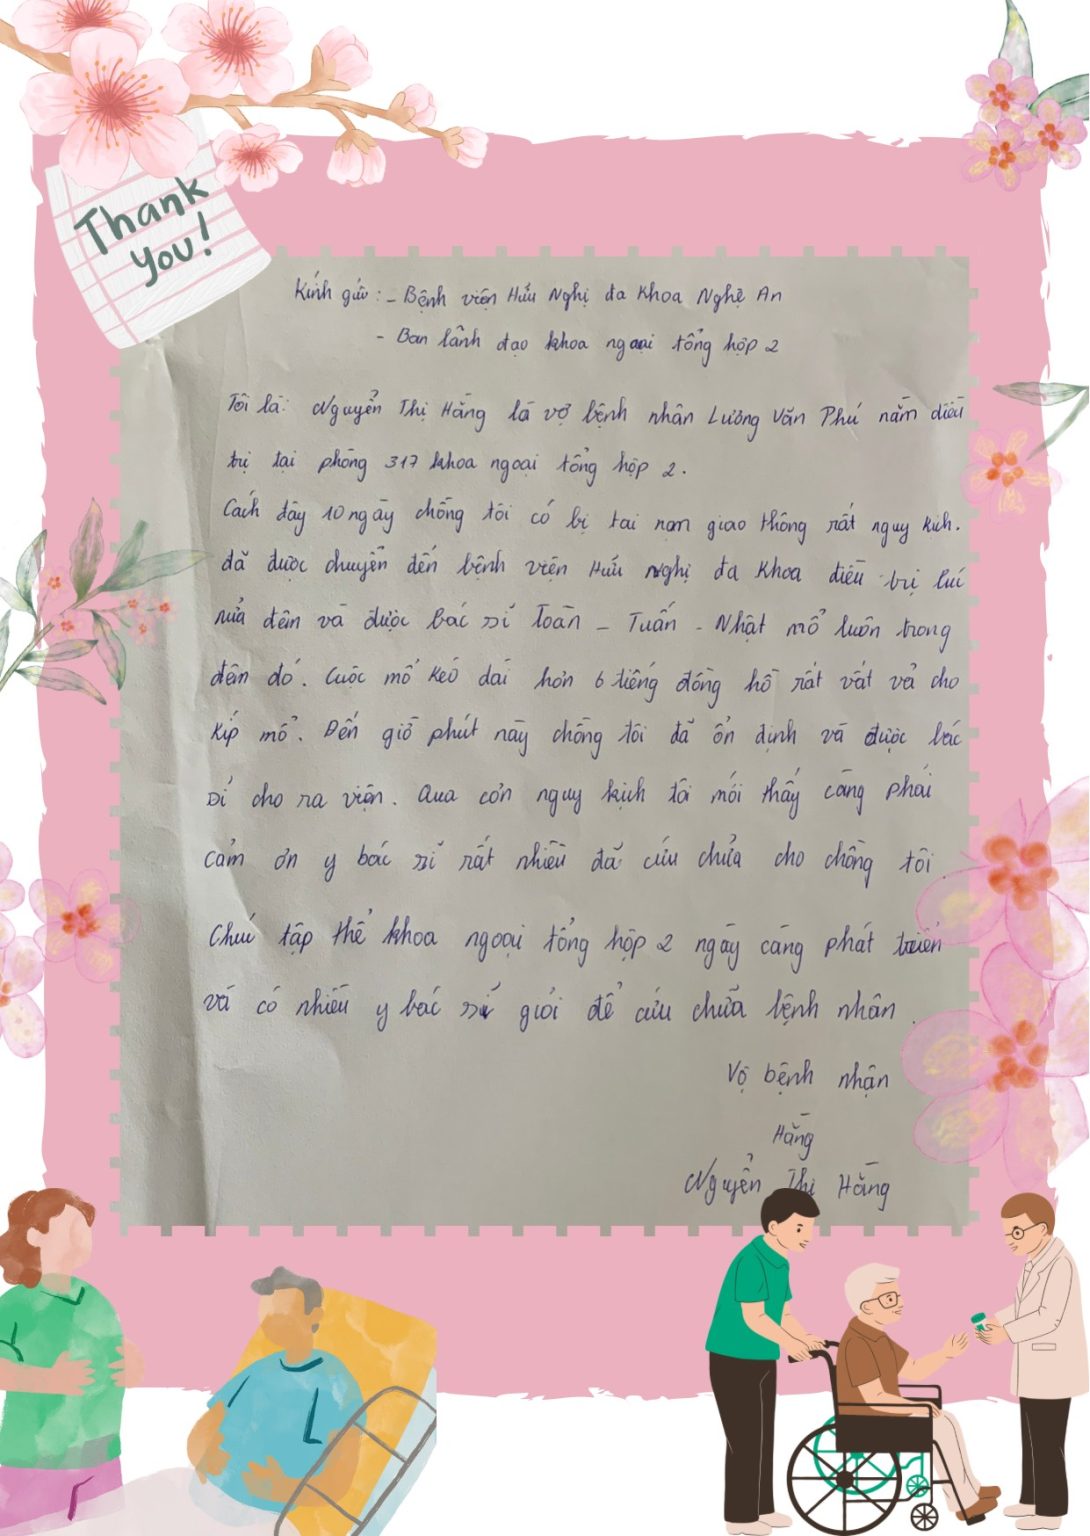 Thank
you!
Kính gửi : - Bệnh viện Hữu Nghị đa Khoa Nghệ An
- Ban lãnh đạo khoa ngoại tổng hợp 2
Tôi là: Nguyễn Thị Hằng là vợ bệnh nhân Lương Văn Phú nằm điều
trị tại phòng 317 khoa ngoại tổng hợp 2.
Cách đây 10 ngày chồng tôi có bị tai nạn giao thông rất nguy kich.
đã được chuyển đến bệnh viện Hữu Nghị đa Khoa điều trị lúc
nửa đêm và được bác sĩ Toàn - Tuấn - Nhật mổ luôn trong
đêm đó. Cuộc mổ kéo dài hơn 6 tiếng đồng hồ rất vất vả cho
kíp mổ. Đến giờ phút này chồng tôi đã ổn định và được bác
sĩ cho ra viện. Qua cơn nguy kịch tôi mới thấy càng phải
cảm ơn y bác sĩ rất nhiều đã cứu chữa cho chồng tôi.
Chúc tập thể khoa ngoại tổng hợp 2 ngày càng phát triển
và có nhiều y bác sĩ giỏi để cứu chữa bệnh nhân.
Vợ bệnh nhận
Hằng
Nguyễn Thị Hằng